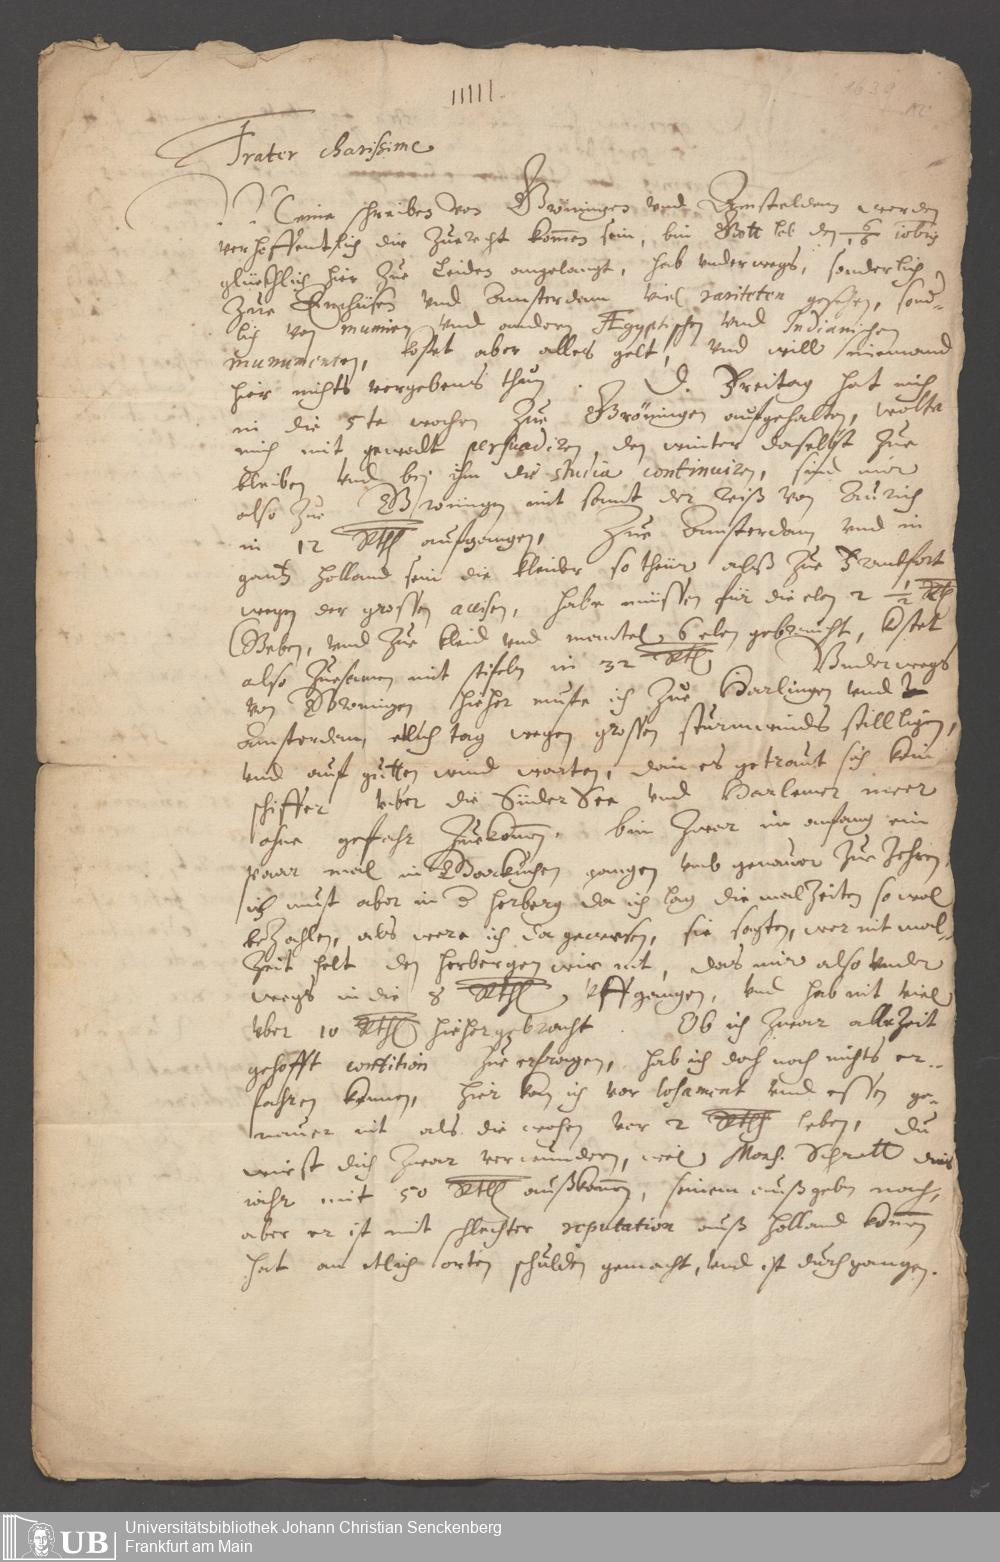 1639
Frater charissime
Meine schreiben von Gröningen vnd Amsteldam werden
verhoffentlich dir zurecht kommen sein, bin Gott lob den 6/16 10bris
glücklich hier zue Leiden angelangt, hab vnderwegs, sonderlich
zue Enchüsen vnd Amsterdam viel rariteten gesehen, sond-
lich von mumien vnd andern Ægyptischen vnd Indianischen
munumenten, kostet aber alles gelt, vnd will niemand
hier nichts vergebens thun. D. Freitag hat mich
in die 5te wochen zue Gröningen aufgehalten, wolte
mich mit gewalt persuadiren den winter daselbst zue
bleiben vnd bey ihm die studia continuiren, sind mir
also zue Gröningen mit sampt der reiß von Aurich
in 12 Rthl aufgangen, Zue Amsterdam vnd in
gantz Holland sein die kleider so theür alß zue Franckfort
wegen der grossen accisen, habe müssen für die elen 2 1/2 Rthl
Geben, vnd zue kleid vnd mantel 6 elen gebraucht, kostet
also zuesamen mit stifeln in 32 Rthl Vnderwegs
von Gröningen hieher muste ich zue Harlingen vnd
Amsterdam etlich tag wegen grossen sturmwinds stillligen,
vnd auf gutten wind warten, dan es getraut sich kein
schiffer vber die Süder See vnd Harlemer meer
ohne gefahr zuekommen. bin zwar im anfang ein
paar mal in Garkuchen gangen vmb genauer zue zehren,
ich must aber in d herberg da ich lag die malzeiten so wol
bezahlen, als were ich da gewesen, sie sagten, wer nit mal-
zeit helt den herbergen wir nit, das mir also vnder
wegs in die 8 Rthl vffgangen, vnd hab nit viel
vber 10 Rthl hiehergebracht. Ob ich zwar allezeit
gehofft condition zue erfragen, hab ich doch noch nichts er-
fahren können, hier kan ich vor losament vnd essen ge-
nauer nit als die wochen vor 2 Rthl leben, du
wirst dich zwar verwundern, weil Mons. Schrött das
iahr mit 50 Rthl außkommen, seinem außgeben nach,
aber er ist mit schlechter reputation auß Holland kommen
hat an etlich orten schulden gemacht, vnd ist durchgangen.
UB
Universitätsbibliothek Johann Christian Senckenberg
Frankfurt am Main